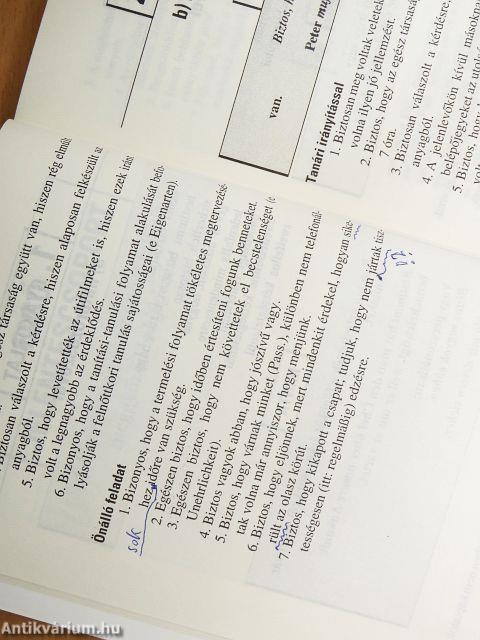 b)
Biztos,
van.
Peter
Tanári irányítással
1. Biztosan meg voltak veletek
volna ilyen jó jellemzést.
2. Biztos, hogy az egész társasá
7 óra.
3. Biztosan válaszolt a kérdésre,
anyagból.
4. A jelenlevőkön kívül másokna
belépőjegyeket az utols
5. Biztos, hogy
volt
társaság együtt van, hiszen rég elmúlt
Biztosan válaszolt a kérdésre, hiszen alaposan felkészült az
anyagból.
5. Biztos, hogy levetítették az útifilmeket is, hiszen ezek iránt
volt a legnagyobb az érdeklődés.
6. Bizonyos, hogy a tanítási-tanulási folyamat alakulását befo-
lyásolják a felnőttkori tanulás sajátosságai (e Eigenarten).
Önálló feladat
1. Bizonyos, hogy a termelési folyamat tökéletes megtervezésé-
sok hez időre van szükség.
2. Egészen biztos, hogy időben értesíteni fogunk benneteket.
3. Egészen biztos, hogy nem követtetek el becstelenséget (e
Unehrlichkeit).
4. Biztos vagyok abban, hogy jószívű vagy.
5. Biztos, hogy várnak minket (Pass.), különben nem telefonál-
tak volna már annyiszor, hogy menjünk.
6. Biztos, hogy eljönnek, mert mindenkit érdekel, hogyan sike-
rült az olasz körút.
7. Biztos, hogy kikapott a csapat; tudjuk, hogy nem jártak tisz-
tességesen (itt: regelmäßig) edzésre.
Antikvárium.hu